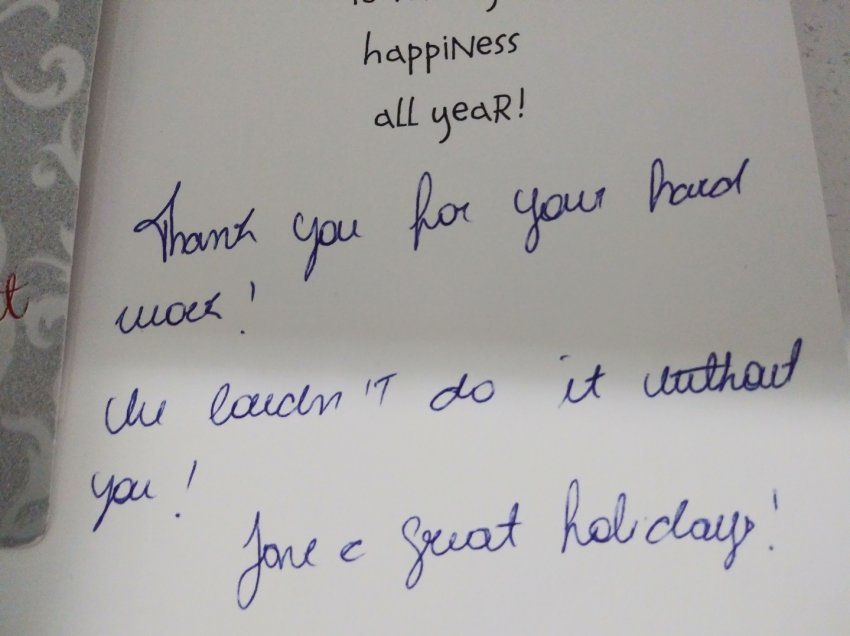 happiNess
all yeaR!
Thank you for your hard
work!
We couldn't do it without
you!
Have a great holidays!
t